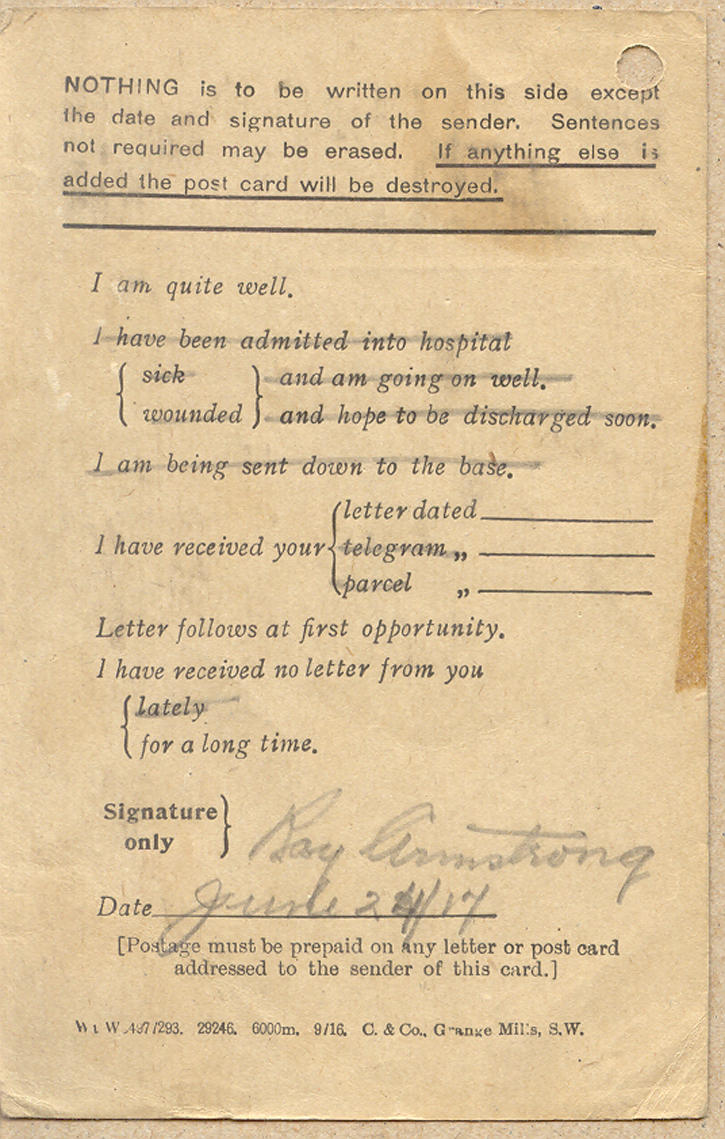 NOTHING is to be written on this side except
the date and signature of the sender. Sentences
not required may be erased. If anything else is
added the post card will be destroyed.
I am quite well.
I have been admitted into hospital
{ sick } and am going on well.
{ wounded } and hope to be discharged soon.
I am being sent down to the base.
{ letter dated
I have received your { telegram „
{ parcel „
Letter follows at first opportunity.
I have received no letter from you
{ lately
{ for a long time.
Signature
only } Ray Armstrong
Date June 24/17
[Postage must be prepaid on any letter or post card
addressed to the sender of this card.]
293. 29246. 6000m. 9/16. C. & Co., Grange Mills, S.W.